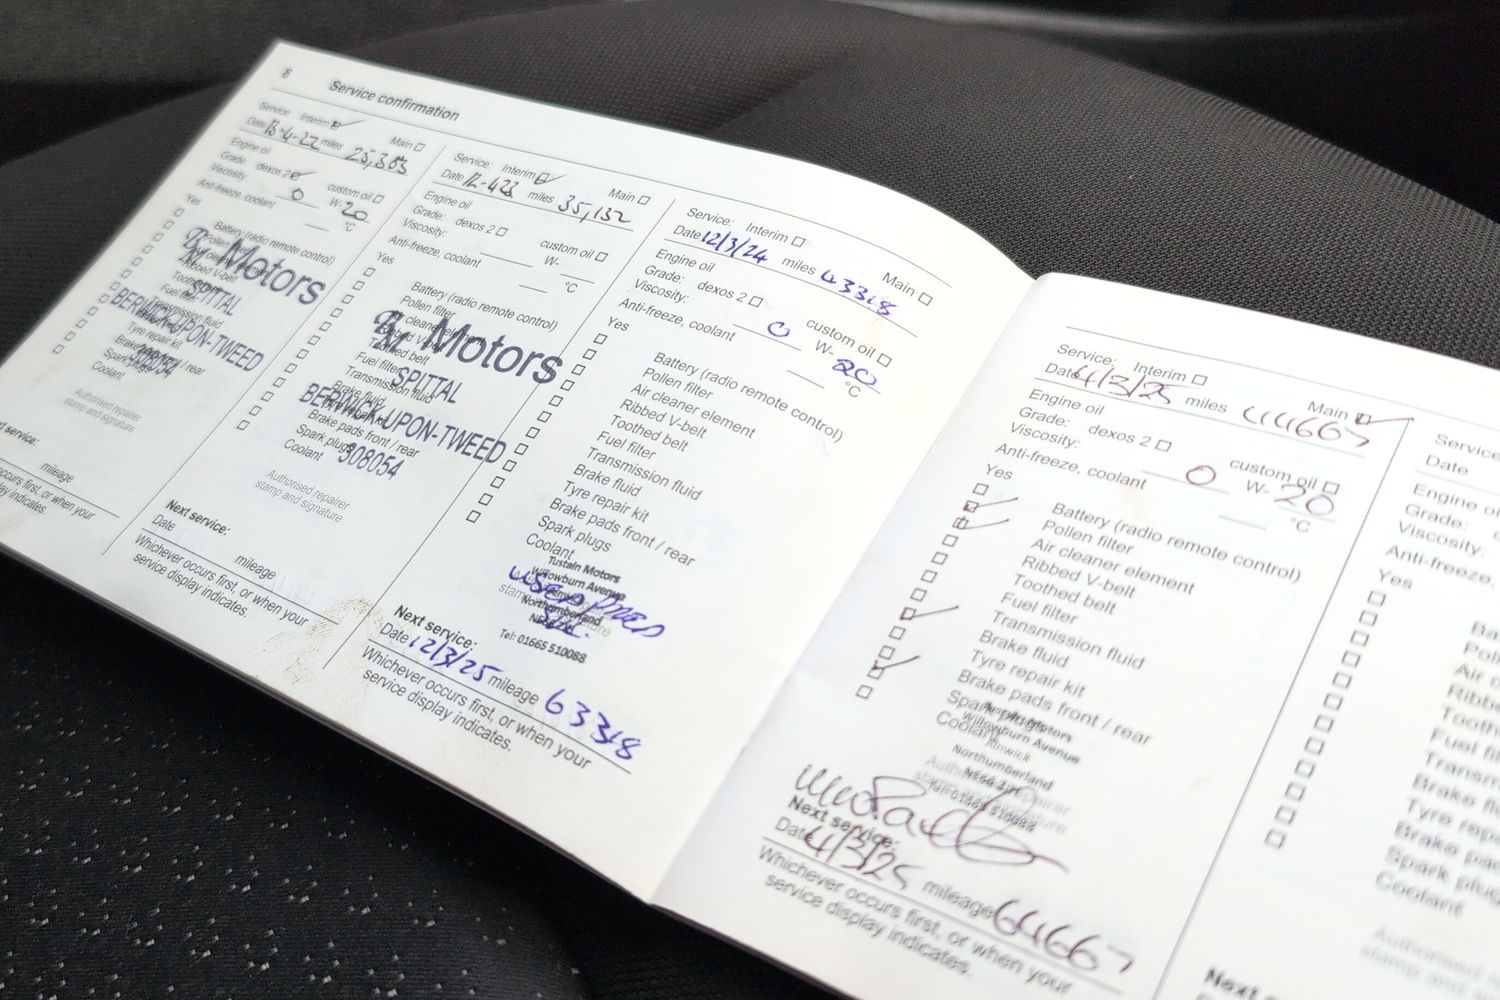 8 Service confirmation
Service: Interim Main
Date 13-4-22 miles 25,383
Engine oil
Grade: dexos 2 custom oil
Viscosity: 0 W- 20
Anti-freeze, coolant °C
Yes
Battery (radio remote control)
Pollen filter
Ribbed V-belt
Fuel filter
Transmission fluid
Tyre repair kit
Coolant
Motors
SPITTAL
BERWICK-UPON-TWEED
308054
Authorised repairer
stamp and signature
service:
mileage
occurs first, or when your
display indicates.
Service: Interim Main
Date 12-4-23 miles 35,132
Engine oil
Grade: dexos 2 custom oil
Viscosity: W-
Anti-freeze, coolant °C
Yes
Battery (radio remote control)
Pollen filter
Toothed belt
Fuel filter
Transmission fluid
Brake fluid
Brake pads front / rear
Spark plugs
Coolant
Motors
SPITTAL
BERWICK-UPON-TWEED
308054
Authorised repairer
stamp and signature
Next service:
Date mileage
Whichever occurs first, or when your
service display indicates.
Service: Interim Main
Date 12/3/24 miles 43318
Engine oil
Grade: dexos 2 custom oil
Viscosity: 0 W- 20
Anti-freeze, coolant °C
Yes
Battery (radio remote control)
Pollen filter
Air cleaner element
Ribbed V-belt
Toothed belt
Fuel filter
Transmission fluid
Brake fluid
Tyre repair kit
Brake pads front / rear
Spark plugs
Coolant
Tustain Motors
Willowburn Avenue
Northumberland
Tel: 01665 510088
Next service:
Date 12/3/25 mileage 63318
Whichever occurs first, or when your
service display indicates.
Service: Interim Main
Date 4/3/25 miles 44667
Engine oil
Grade: dexos 2 custom oil
Viscosity: 0 W- 20
Anti-freeze, coolant °C
Yes
Battery (radio remote control)
Pollen filter
Air cleaner element
Ribbed V-belt
Toothed belt
Fuel filter
Transmission fluid
Brake fluid
Tyre repair kit
Brake pads front / rear
Spark plugs
Coolant
Motors
Willowburn Avenue
Alnwick
Northumberland
Next service:
Date 4/3/25 mileage 64667
Whichever occurs first, or when your
service display indicates.
Service
Date
Engine oil
Grade:
Viscosity:
Anti-freeze,
Yes
Next